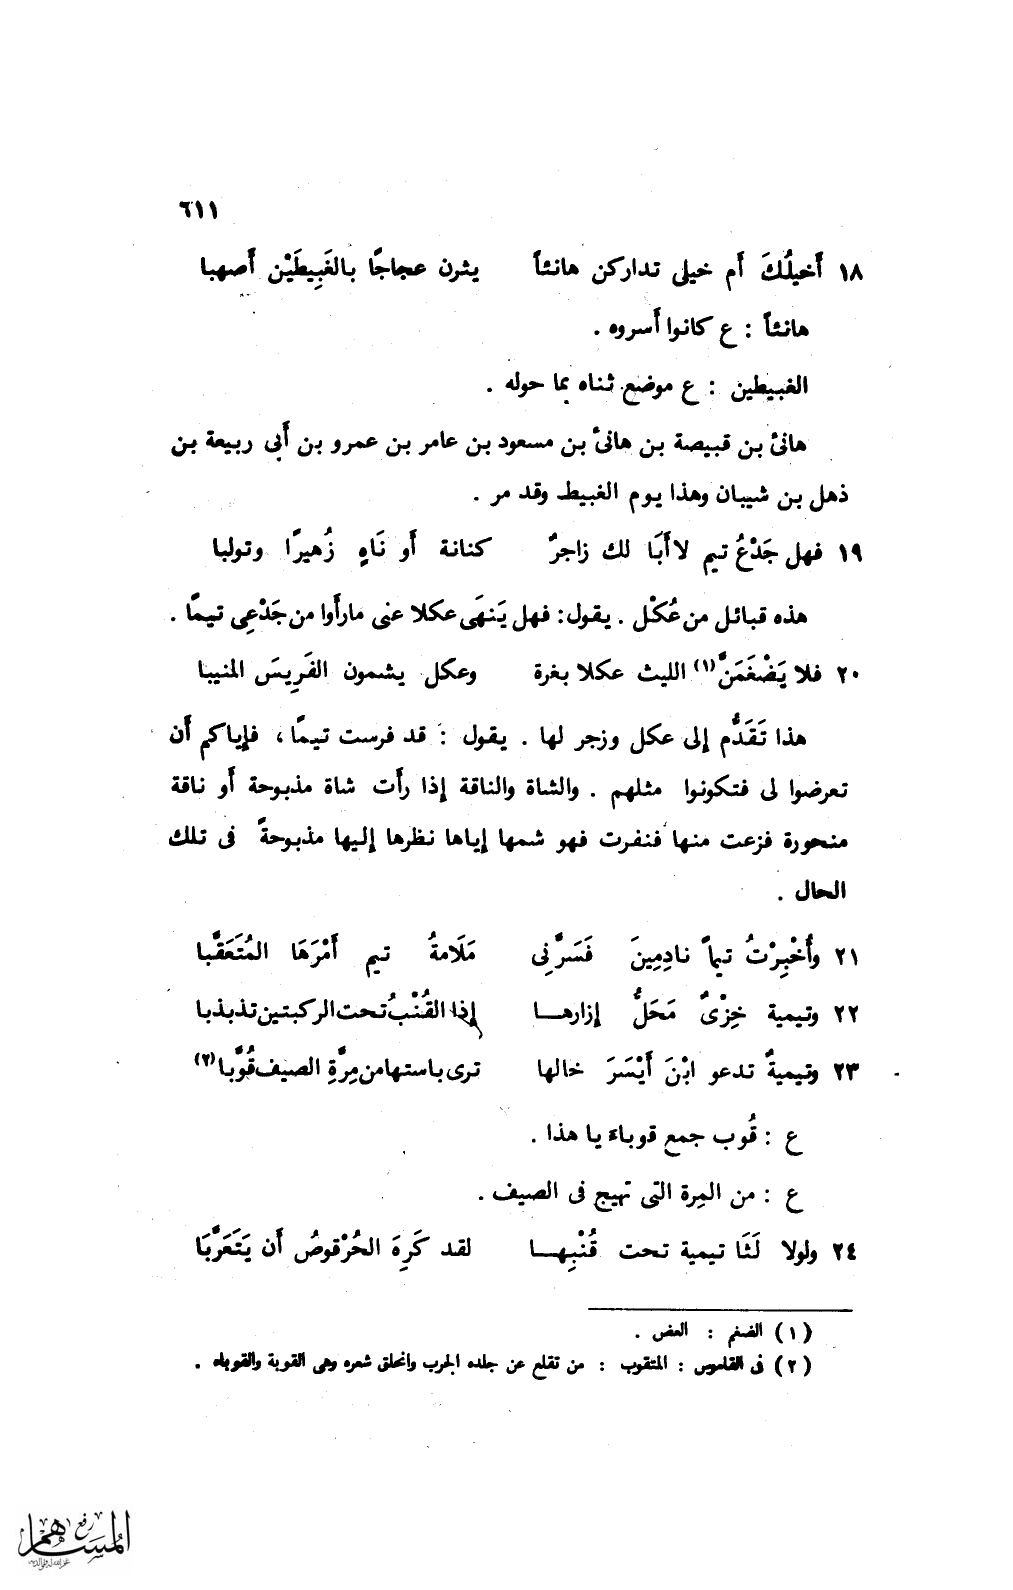 ٦١١
١٨ أَخيلُكَ أم خيلى تداركن هانئاً يثرن عجاجًا بالغَبِيطَيْن أصهبا
هانئاً : ع كانوا أسروه .
الغبيطين : ع موضع ثناه بما حوله .
هانئ بن قبيصة بن هانئ بن مسعود بن عامر بن عمرو بن أبى ربيعة بن
ذهل بن شيبان وهذا يوم الغبيط وقد مر .
١٩ فهل جَدْعُ تيم لا أَبَا لك زاجرٌ كنانة أو نَاهٍ زُهيرًا وتولبا
هذه قبائل من عُكْل . يقول: فهل يَنهَى عكلا عنى مارأوا من جَدْعِى تيمًا .
٢٠ فلا يَضْغَمَنَّ(١) الليث عكلا بغرة وعكل يشمون الفَرِيسَ المنيبا
هذا تَقَدُّم إلى عكل وزجر لها . يقول : قد فرست تيمًا ، فإياكم أن
تعرضوا لى فتكونوا مثلهم . والشاة والناقة إذا رأت شاة مذبوحة أو ناقة
منحورة فزعت منها فنفرت فهو شمها إياها نظرها إليها مذبوحةً فى تلك
الحال .
٢١ وأُخْبِرْتُ تيماً نادِمِينَ فَسَرَّنِى مَلَامةُ تيم أَمْرَهَا المُتَعَقَّبا
٢٢ وتيمية خِزْىٌ مَحَلُّ إزارهــا إذا القُنْبُ تحت الركبتين تذبذبا
٢٣ وتيميةٌ تدعو ابْنَ أَيْسَرَ خالها ترى باستها من مِرَّةِ الصيف قُوَّبا(٢)
ع : قُوب جمع قوباء يا هذا .
ع : من المِرة التى تهيج فى الصيف .
٢٤ ولولا لَثَا تيمية تحت قُنْبِهــا لقد كَرِهَ الحُرْقوصُ أن يَتَعَرَّبَا
(١) الضغم : العض .
(٢) فى القاموس : المتقوب : من تقلع عن جلده الجرب وانحلق شعره وهى القوبة والقوباء .
رفع
المساهم